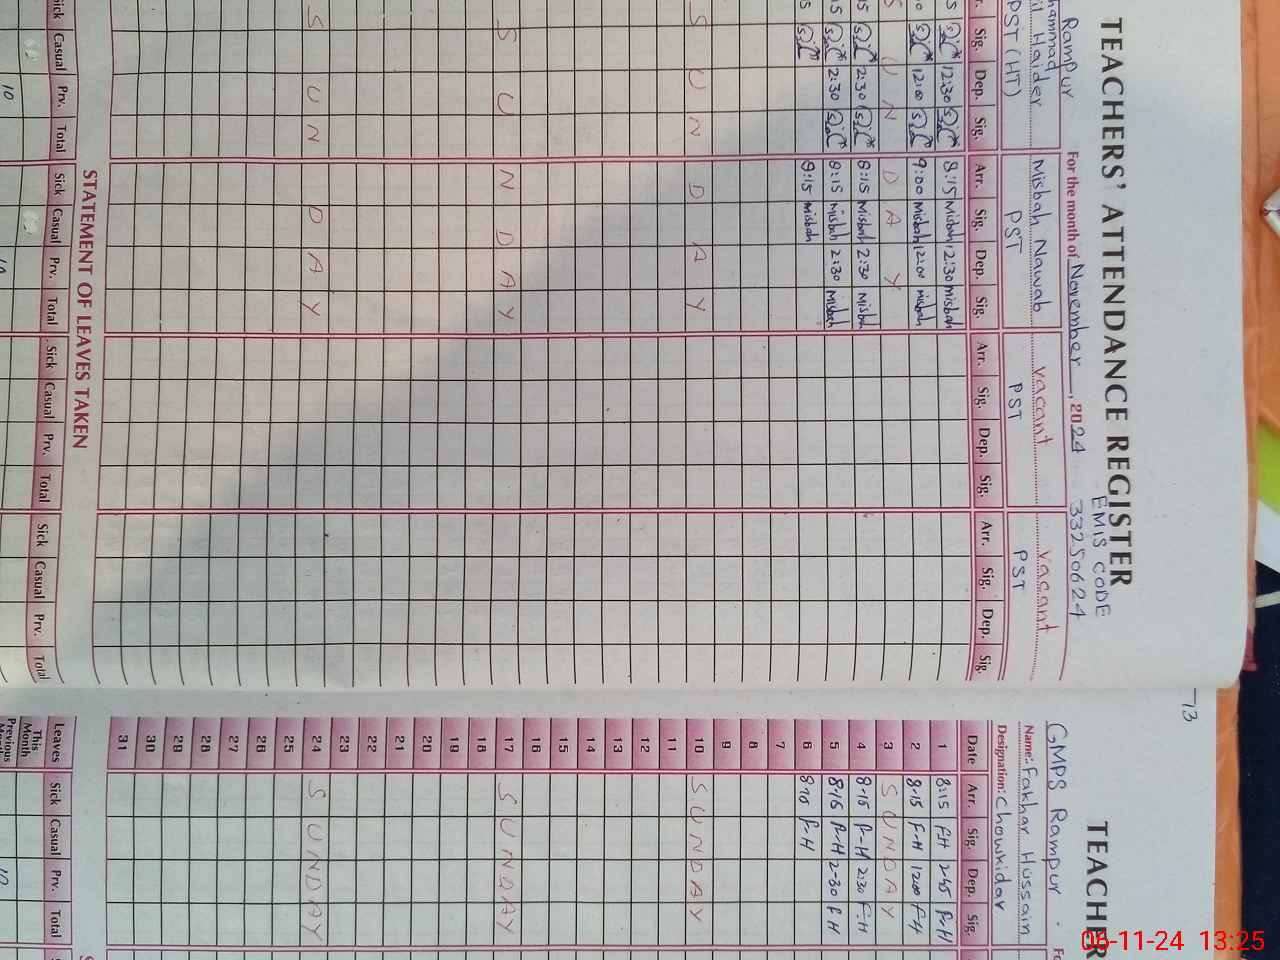 TEACHERS' ATTENDANCE REGISTER
EMIS CODE
Rampur For the month of November, 2024 33250624
Haider Misbah Nawab vacant vacant
PST (HT) PST PST PST
Sig. Dep. Sig. Arr. Sig. Dep. Sig. Arr. Sig. Dep. Sig. Arr. Sig. Dep. Sig.
12:30 8:15 Misbah 12:30 misbah
12:00 9:00 Misbah 12:00 misbah
S U N D A Y
2:30 8:15 Misbah 2:30 Misbah
2:30 8:15 Misbah 2:30 Misbah
8:15 Misbah
S U N D A Y
S U N D A Y
S U N D A Y
STATEMENT OF LEAVES TAKEN
Sick Casual Prv. Total Sick Casual Prv. Total Sick Casual Prv. Total Sick Casual Prv. Total
10 10
73
TEACHER
GMPS Rampur
Name: Fakhar Hussain
Designation: Chowkidar
Date Arr. Sig. Dep. Sig.
1 8:15 F-H 2-45 F-H
2 8-15 F-H 12:00 F-H
3 S U N D A Y
4 8-15 F-H 2:30 F-H
5 8-15 F-H 2-30 F-H
6 8-10 F-H
7
8
9
10 S U N D A Y
11
12
13
14
15
16
17 S U N D A Y
18
19
20
21
22
23
24 S U N D A Y
25
26
27
28
29
30
31
Leaves Sick Casual Prv. Total
This Month
Previous Month 10
06-11-24 13:25